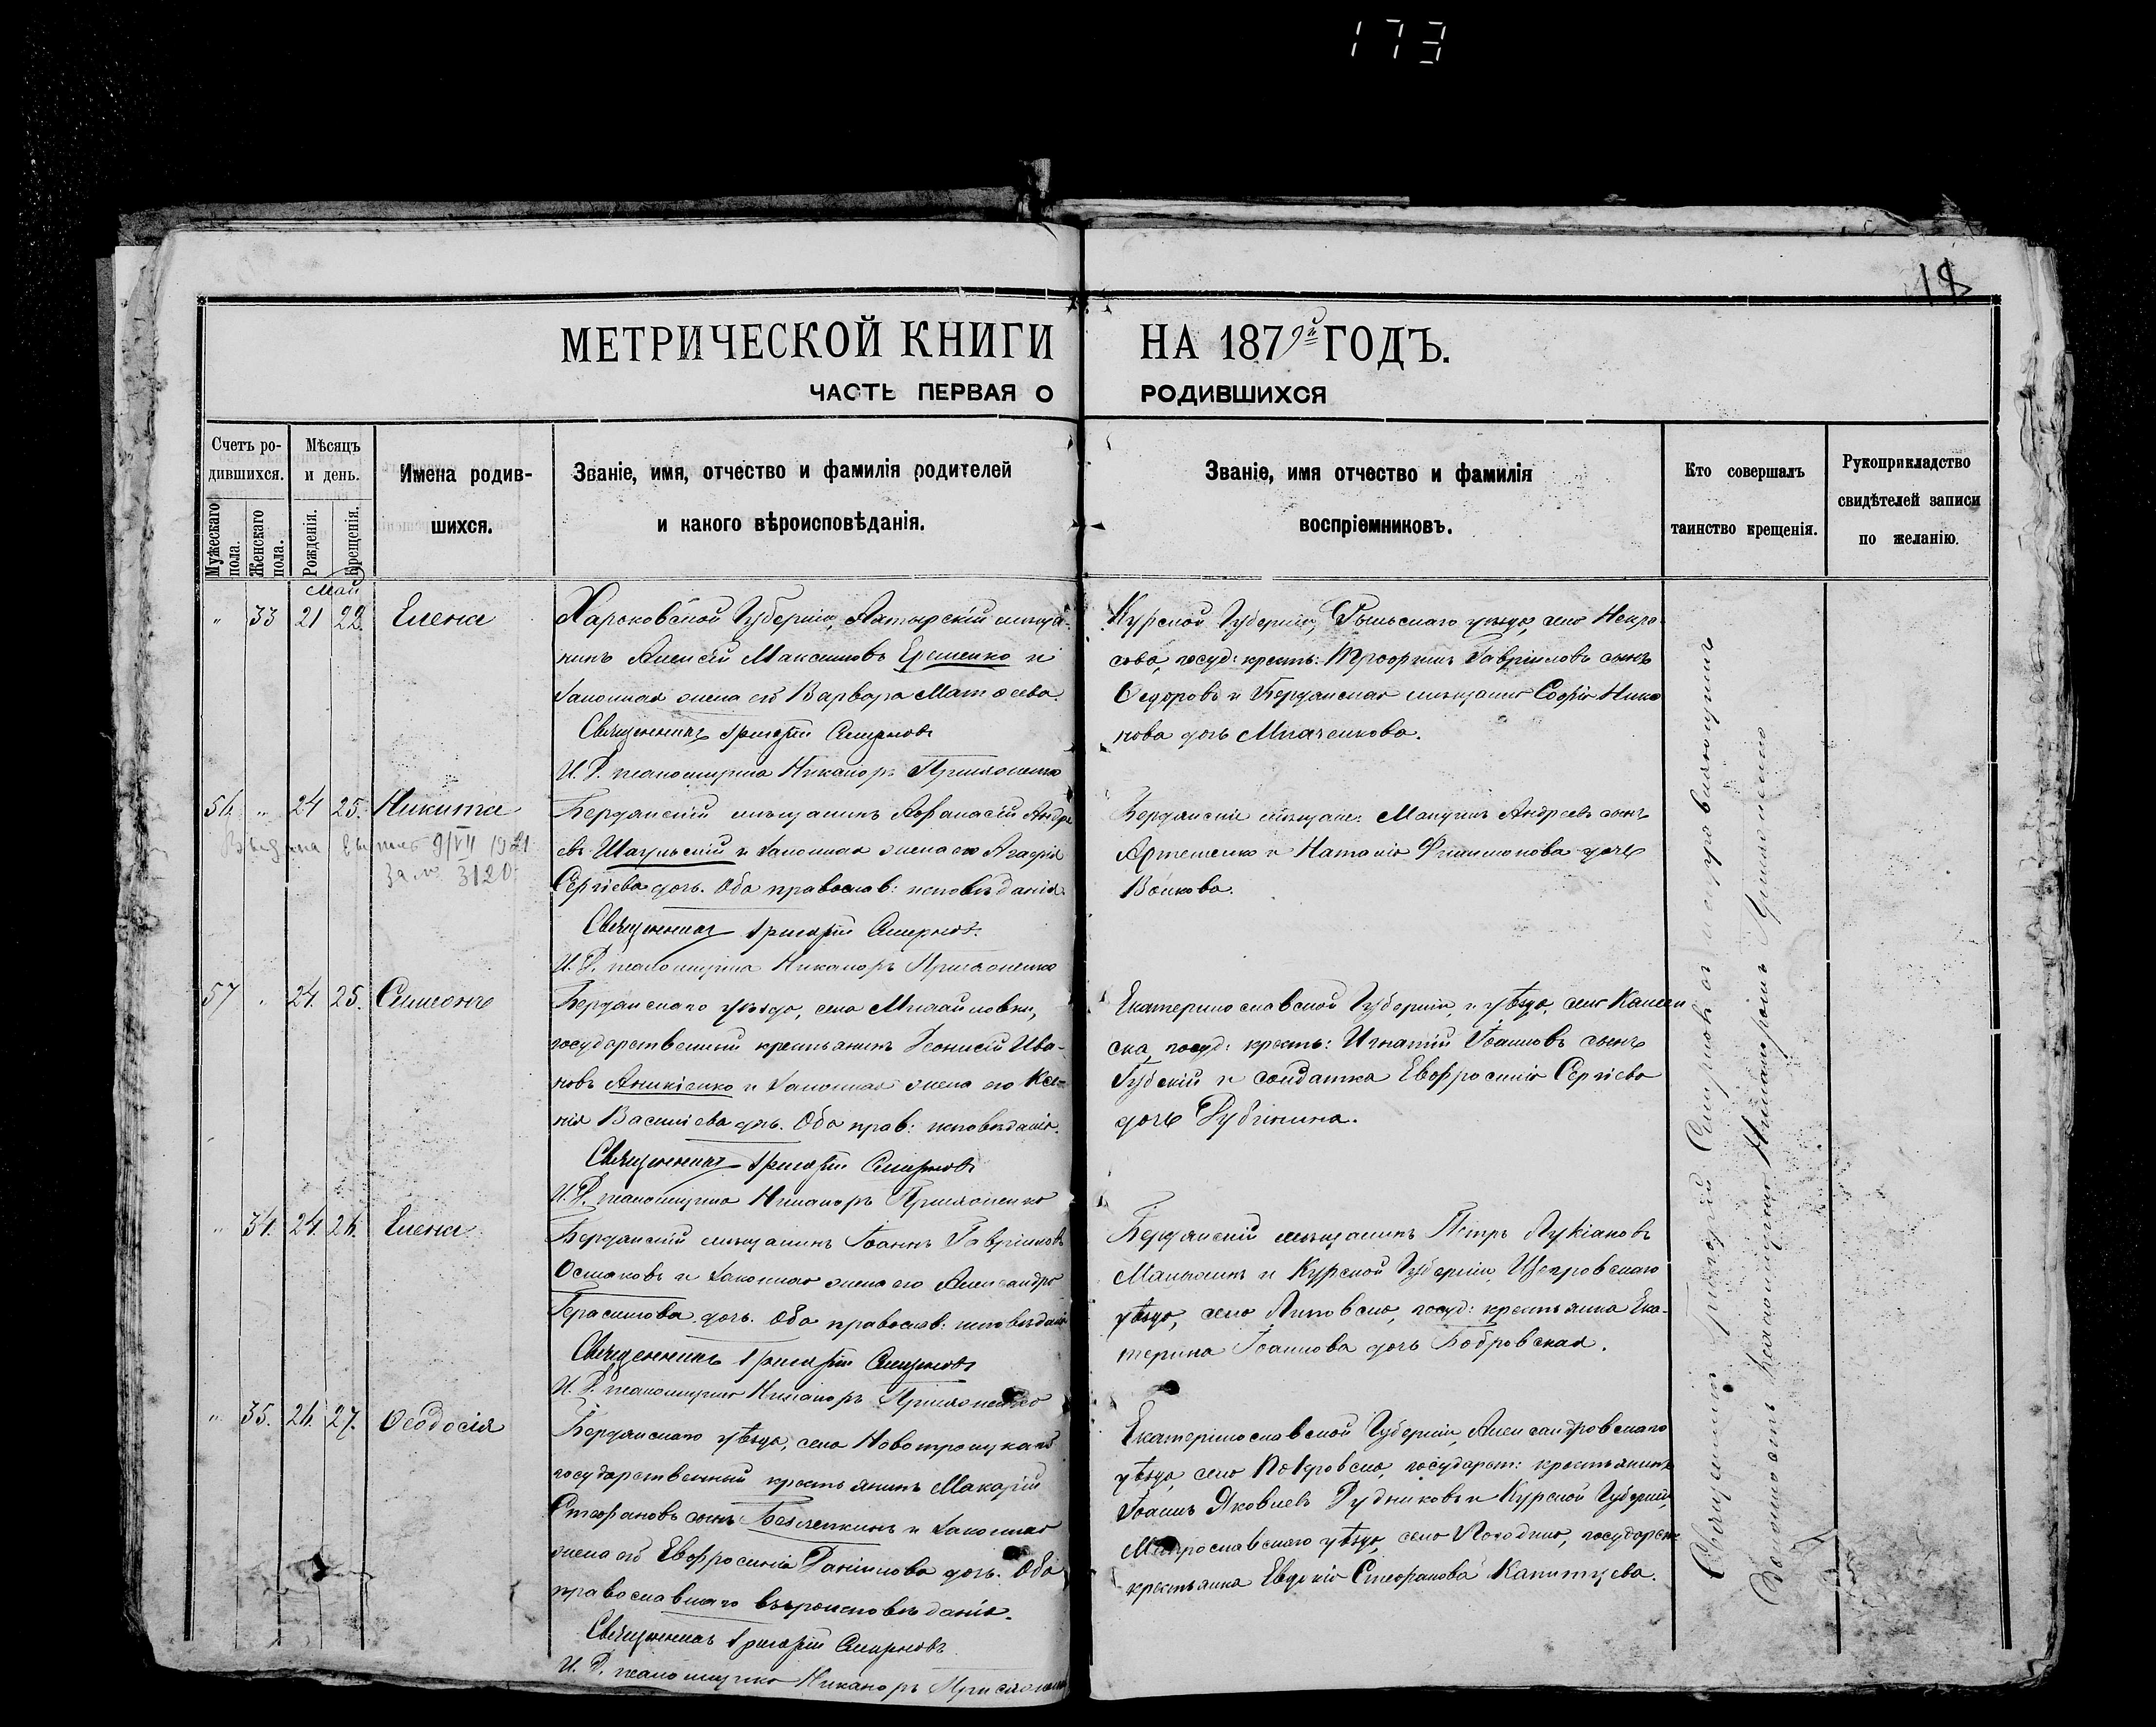 173
18
МЕТРИЧЕСКОЙ КНИГИ НА 1879й ГОДЪ.
ЧАСТЬ ПЕРВАЯ О РОДИВШИХСЯ
Счетъ родившихся.
Мужескаго пола.
Женскаго пола.
Мѣсяцъ и день.
Рожденія.
Крещенія.
Имена родив-
шихся.
Званіе, имя, отчество и фамилія родителей
и какого вѣроисповѣданія.
Званіе, имя отчество и фамилія
воспріемниковъ.
Кто совершалъ
таинство крещенія.
Рукоприкладство
свидѣтелей записи
по желанію.
Май
" 33 21 22 Елена
Харьковской Губерніи, мѣща-
нинъ Алексѣй Максимовъ Ерешенко и
законная жена его Варвара Матѳеева.
Священникъ Григорій Смирновъ
И. Д. псаломщика Никаноръ
Курской Губерніи, Рыльскаго уѣзда, села Некра-
сова, госуд: крест: Трофимъ Гавріиловъ сынъ
Ѳедоровъ и Бердянская мѣщанка Софія
дочь
56 " 24 25 Никита
9/VII 1921
за № 3120
Бердянскій мѣщанинъ Аѳанасій Андре
евъ Шагульскій и законная жена его Агафія
Сергіева дочь. Оба православ: исповѣданія.
Священникъ Григорій Смирновъ.
И. Д. псаломщика Никаноръ
Бердянскій мѣщан: Андреевъ сынъ
Артеменко и Наталія Филимонова дочь
Волкова.
57 " 24. 25. Симеонъ
Бердянскаго уѣзда, села Михайловки,
государственный крестьянинъ Леонтій Ива-
новъ Аникіенко и законная жена его Ксе-
нія Василіева дочь. Оба прав: исповѣданія.
Священникъ Григорій Смирновъ
И. Д. псаломщика Никаноръ
Екатеринославской Губерніи, и уѣзда, села Камен
ска, госуд: крест: Игнатій Іоанновъ сынъ
Губскій и солдатка Евфросинія Сергіева
дочь Дубинина.
" 34. 24. 26. Елена
Бердянскій мѣщанинъ Іоаннъ Гавріиловъ
Осмаковъ и законная жена его Александра
Герасимова дочь. Оба православ: исповѣданія
Священникъ Григорій Смирновъ
И. Д. псаломщика Никаноръ
Бердянскій мѣщанинъ Петръ Лукіановъ
и Курской Губерніи, Щигровскаго
уѣзда, села Липовска, госуд: крестьянка Ека-
терина Іоаннова дочь Бобровская.
" 35. 26. 27. Ѳеодосія
Бердянскаго уѣзда, села
государственный крестьянинъ Макарій
Стефановъ сынъ Безлепкинъ и законная
жена его Евфросинія Даніилова дочь. Оба
православнаго вѣроисповѣданія.
Священникъ Григорій Смирновъ
И. Д. псаломщика Никаноръ
Екатеринославской Губерніи, Александровскаго
уѣзда, села Покровска, государст: крестьянинъ
Іоаннъ Яковлевъ Рудниковъ и Курской Губерніи,
уѣзда, села государст:
крестьянка Евдокія Стефанова
Священникъ Григорій Смирновъ съ исправляющимъ
должность псаломщика Никаноромъ